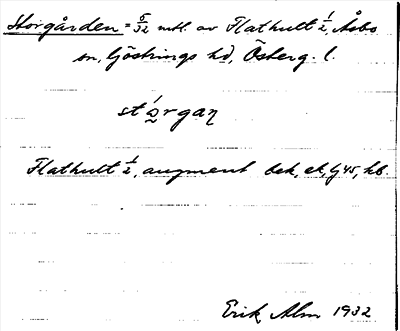 Storgården = 5/32 mtl. av Flathult 1/2, Åsbo
sn, Göstrings hd, Österg. l.
stórgaŋ
Flathult 1/2, augment bek, ek, Gj 45, hb.
Erik Alm 1932